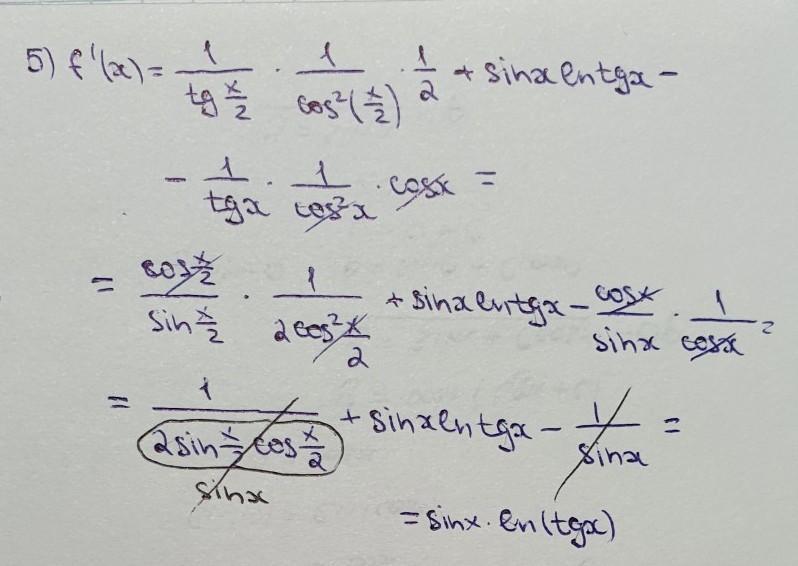 5) f'(x) = 1/(tg x/2) · 1/(cos²(x/2)) · 1/2 + sinx ln tgx -
- 1/(tgx) · 1/(cos²x) · cosx =
= (cos x/2)/(sin x/2) · 1/(2cos² x/2) + sinx ln tgx - cosx/sinx · 1/cosx =
= 1/(2sin x/2 cos x/2) + sinx ln tgx - 1/sinx =
sinx
= sinx · ln(tgx)